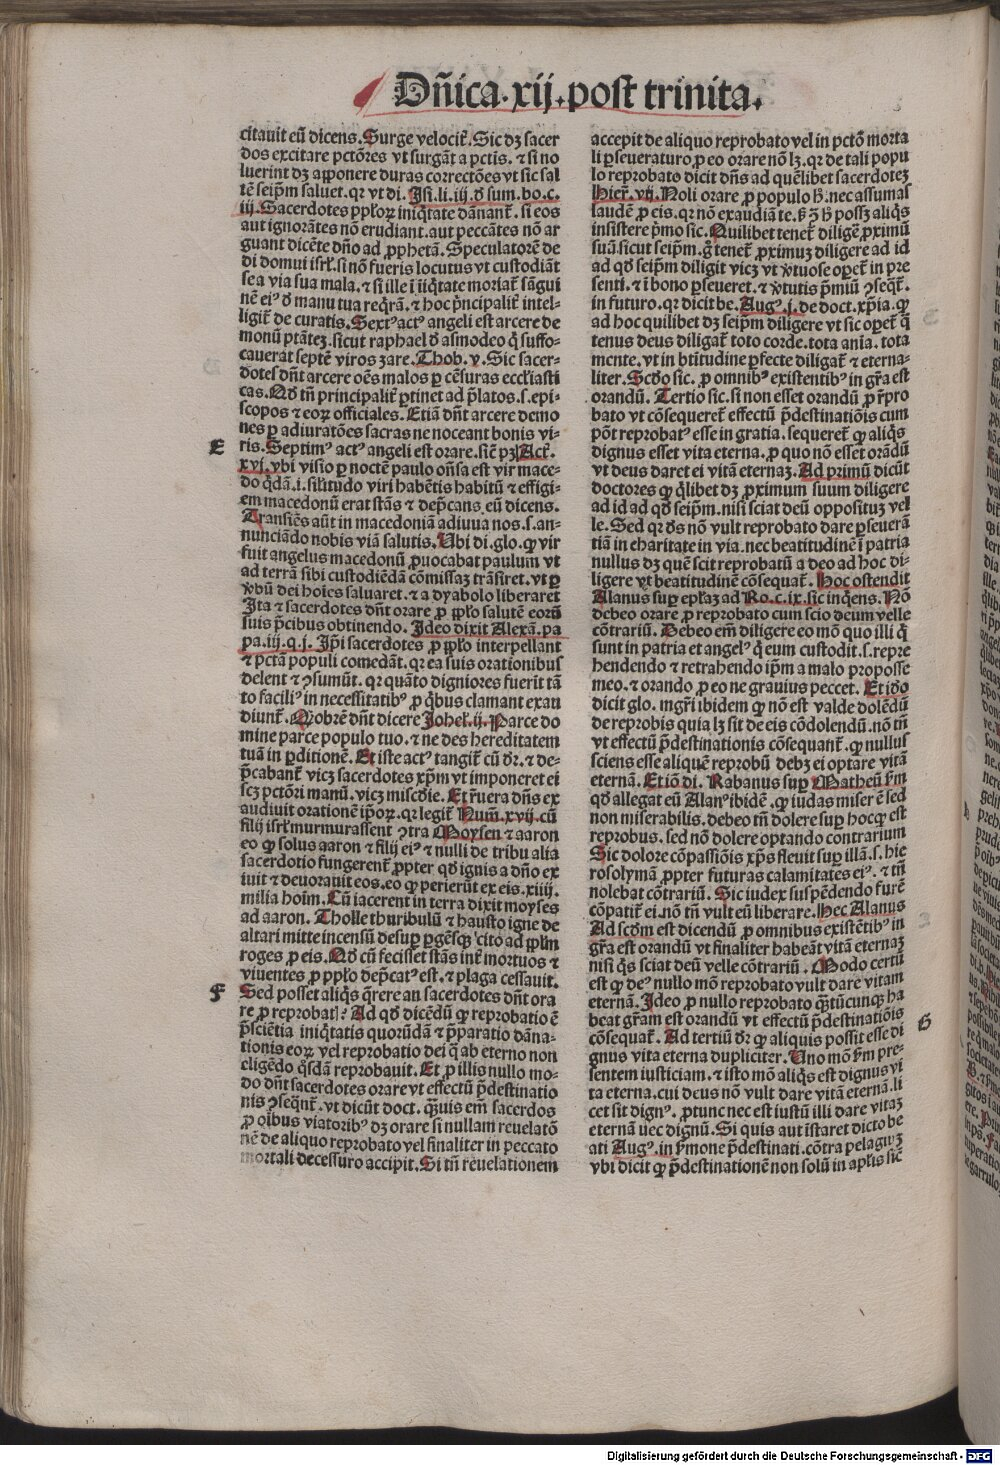 Dñica.xij.post trinita.
citauit eũ dicens. Surge velocit̃. Sic dꝫ sacer
dos excitare pctõres vt surgãt a pctis. ⁊ si no
luerint dꝫ apponere duras correctões vt sic sal
tẽ seip̃m saluet. qꝛ vt di. Isi. li. iij. ð sum. bo. c.
iij. Sacerdotes pp̃loꝝ iniq̃tate dãnant̃. si eos
aut ignorãtes nõ erudiant. aut peccãtes nõ ar
guant dicẽte dño ad ꝓphetã. Speculatorẽ de
di domui isrł. si nõ fueris locutus vt custodiãt
se a via sua mala. ⁊ si ille ĩ iniq̃tate moriat̃ sãgui
nẽ eiꝰ ð manu tua req̃rã. ⁊ hoc p̃ncipalit̃ intel-
ligit̃ de curatis. Sextꝰ actꝰ angeli est arcere de
monũ ptãteꝫ. sicut raphael ð asmodeo q̃ suffo-
cauerat septẽ viros zare. Thob. v. Sic sacer-
dotes dñt arcere oẽs malos ꝑ cẽsuras eccl̃iasti
cas. Qð tñ principalit̃ ꝑtinet ad p̃latos. s. epi-
scopos ⁊ eoꝝ officiales. Etiã dñt arcere demo
nes ꝑ adiuratões sacras ne noceant bonis vi-
E
ris. Septimꝰ actꝰ angeli est orare. sic̃ pꝫ Act̃.
xvj. vbi visio ꝑ noctẽ paulo oñsa est vir mace-
do q̃dã. i. sil̃itudo viri habẽtis habitũ ⁊ effigi-
em macedonũ erat stãs ⁊ dep̃cans eũ dicens.
Transiẽs aũt in macedoniã adiuua nos. s. an-
nunciãdo nobis viã salutis. Ubi di. glo. ꝙ vir
fuit angelus macedonũ ꝓuocabat paulum vt
ad terrã sibi custodiẽdã cõmissaꝫ trãsiret. vt ꝑ
v̾bũ dei hoĩes saluaret. ⁊ a dyabolo liberaret
Ita ⁊ sacerdotes dñt orare ꝓ pp̃lo salutẽ eorũ
suis p̃cibus obtinendo. Ideo dixit Alexã. pa
pa. iij. q. j. Ip̃i sacerdotes ꝓ pp̃lo interpellant
⁊ pctã populi comedãt. qꝛ ea suis orationibus
delent ⁊ ꝯsumũt. qꝛ quãto digniores fuerĩt tã
to faciliꝰ in necessitatibꝰ ꝓ q̃bus clamant exau
diunt̃. Mobrẽ dñt dicere Johel. ij. Parce do
mine parce populo tuo. ⁊ ne des hereditatem
tuã in ꝑditionẽ. Et iste actꝰ tangit̃ cũ dr̃. ⁊ de-
p̃cabant̃ vicꝫ sacerdotes xp̃m vt imponeret ei
scꝫ pctõri manũ. vicꝫ miscðie. Et r̃uera dñs ex
audiuit orationẽ ip̃oꝝ. qꝛ legit̃ Num̃. xvij. cũ
filij isrł murmurassent ꝯtra Moysen ⁊ aaron
eo ꝙ solus aaron ⁊ filij eiꝰ ⁊ nulli de tribu alia
sacerdotio fungerent̃ ꝓpter qð ignis a dño ex
iuit ⁊ deuorauit eos. eo ꝙ perierũt ex eis. xiiij.
milia hoĩm. Cũ iacerent in terra dixit moyses
ad aaron. Tholle thuribulũ ⁊ hausto igne de
altari mitte incensũ desuꝑ ꝑgẽsqꝫ cito ad pp̃lm
roges ꝓ eis. Qð cũ fecisset stãs int̃ mortuos ⁊
viuentes ꝓ pp̃lo dep̃catꝰ est. ⁊ plaga cessauit.
F
Sed posset aliq̃s q̃rere an sacerdotes dñt ora
re ꝓ reprobat̃? Ad qð dicẽdũ ꝙ reprobatio ẽ
p̃sciẽtia iniq̃tatis quorũdã ⁊ p̃paratio dãna-
tionis eoꝝ vel reprobatio dei q̃ ab eterno non
eligẽdo q̃sdã reprobauit. Et ꝓ illis nullo mo-
do dñt sacerdotes orare vt effectũ p̃destinatio
nis ꝯseqñt̃. vt dicũt doct. q̃uis em̃ sacerdos
ꝓ oĩbus viatoribꝰ dꝫ orare si nullam reuelatõ
nẽ de aliquo reprobato vel finaliter in peccato
mortali decessuro accipit. Si tñ reuelationem
accepit de aliquo reprobato vel in pctõ morta
li ꝑseueraturo, ꝓ eo orare nõ lꝫ. qꝛ de tali popu
lo reprobato dicit dñs ad quẽlibet sacerdoteꝫ
Hier̃. vij. Noli orare ꝓ populo h̾. nec assumas
laudẽ ꝓ eis. qꝛ nõ exaudiã te. Sꝫ ꝯ̃ h̾ possꝫ aliq̃s
insistere p̃mo sic. Quilibet tenet̃ diligẽ. ꝓximũ
suũ sicut seip̃m. g̃ tenet̃ ꝓximuꝫ diligere ad id
ad qð seip̃m diligit vicꝫ vt v̾tuose oꝑet̃ in pre
senti. ⁊ ĩ bono ꝑseueret. ⁊ v̾tutis p̃miũ ꝯseq̃t̃.
in futuro. qꝛ dicit be. Augꝰ. j. de doct. xp̃ia. ꝙ
ad hoc quilibet dꝫ seip̃m diligere vt sic oꝑet̃ q̃
tenus deus diligat̃ toto corde. tota aĩa. tota
mente. vt in btĩtudine ꝑfecte diligat̃ ⁊ eterna-
liter. Scðo sic. ꝓ omnibꝰ existentibꝰ in gr̃a est
orandũ. Tertio sic. si non esset orandũ ꝓ r̃pro
bato vt cõsequeret̃ effectũ p̃destinatiõis cum
põt reprobatꝰ esse in gratia. sequeret̃ ꝙ aliq̃s
dignus esset vita eterna. ꝓ quo nõ esset orãdũ
vt deus daret ei vitã eternaꝫ. Ad primũ dicũt
doctores ꝙ q̃libet dꝫ ꝓximum suum diligere
ad id ad qð seip̃m. nisi sciat deũ oppositũ vel
le. Sed qꝛ ð̃s nõ vult reprobato dare ꝑseuerã
tiã in charitate in via. nec beatitudinẽ ĩ patria
nullus dꝫ quẽ scit reprobatũ a deo ad hoc di-
ligere vt beatitudinẽ cõsequat̃. Hoc ostendit
Alanus suꝑ ep̃łaꝫ ad Ro. c. ix. sic inq̃ens. Nõ
debeo orare ꝓ reprobato cum scio deum velle
cõtrariũ. Debeo em̃ diligere eo mõ quo illi q̃
sunt in patria et angelꝰ q̃ eum custodit. s. repre
hendendo ⁊ retrahendo ip̃m a malo proposse
meo. ⁊ orando ꝓ eo ne grauius peccet. Et iðo
dicit glo. mgr̃i ibidem ꝙ nõ est valde dolẽdũ
de reprobis quia lꝫ sit de eis cõdolendũ. nõ tñ
vt effectũ p̃destinationis cõsequant̃. ꝙ nullus
sciens esse aliquẽ reprobũ debꝫ ei optare vitã
eternã. Et iõ di. Rabanus suꝑ Matheũ s̃m
qð allegat eũ Alanꝰ ibidẽ. ꝙ iudas miser ẽ sed
non miserabilis. debeo tñ dolere suꝑ hoc ꝙ est
reprobus. sed nõ dolere optando contrarium
Sic dolore cõpassiõis xp̃s fleuit suꝑ illã. s. hie
rosolymã ꝓpter futuras calamitates eiꝰ. ⁊ tñ
nolebat cõtrariũ. Sic iudex suspẽdendo furẽ
cõpatit̃ ei. nõ tñ vult eũ liberare. Hec Alanus
Ad scðm est dicendũ ꝓ omnibus existẽtibꝰ in
gr̃a est orandũ vt finaliter habeãt vitã eternaꝫ
nisi q̃s sciat deũ velle cõtrariũ. Modo certũ
est ꝙ deꝰ nullo mõ reprobato vult dare vitam
eternã. Ideo ꝓ nullo reprobato q̃ꝫtũcunqꝫ ha
G
beat gr̃am est orandũ vt effectũ p̃destinatiõis
cõsequat̃. Ad tertiũ dr̃ ꝙ aliquis possit esse di
gnus vita eterna dupliciter. Uno mõ s̃m pre-
sentem iusticiam. ⁊ isto mõ aliq̃s est dignus vi
ta eterna. cui deus nõ vult dare vitã eternã. li
cet sit dignꝰ. ꝓtunc nec est iustũ illi dare vitaꝫ
eternã nec dignũ. Si quis aut ĩstaret dicto be
ati Augꝰ. in s̃mone p̃destinati. cõtra pelagiũ
vbi dicit ꝙ p̃destinationẽ non solũ in ap̃lis sic̃
Digitalisierung gefördert durch die Deutsche Forschungsgemeinschaft - DFG